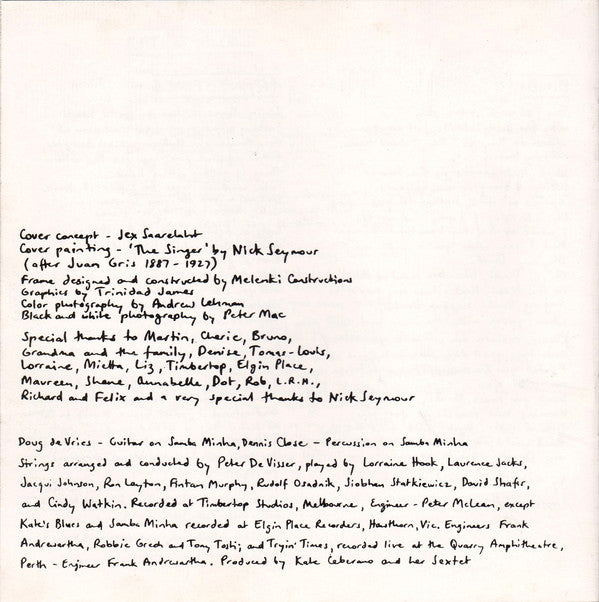 Cover concept - Jex Saarelaht
Cover painting - 'The Singer' by Nick Seymour
(after Juan Gris 1887 - 1927)
Frame designed and constructed by Melenki Constructions
Graphics by Trinidad James
Color photography by Andrew Lehman
Black and white photography by Peter Mac
Special thanks to Martin, Cherie, Bruno,
Grandma and the family, Denise, Tomas-Louis,
Lorraine, Mietta, Liz, Timbertop, Elgin Place,
Maureen, Shane, Annabelle, Dot, Rob, L.R.M.,
Richard and Felix and a very special thanks to Nick Seymour
Doug de Vries - Guitar on Samba Minha, Dennis Close - Percussion on Samba Minha
Strings arranged and conducted by Peter De Visser, played by Lorraine Hook, Laurence Jacks,
Jacqui Johnson, Ron Layton, Fintan Murphy, Rudolf Osadnik, Siobhan Statkiewicz, David Shafir,
and Cindy Watkin. Recorded at Timbertop Studios, Melbourne, Engineer - Peter McLean, except
Kate's Blues and Samba Minha recorded at Elgin Place Recorders, Hawthorn, Vic. Engineers Frank
Andrewartha, Robbie Grech and Tony Toshi; and Tryin' Times, recorded live at the Quarry Amphitheatre,
Perth - Engineer Frank Andrewartha. Produced by Kate Ceberano and her Sextet